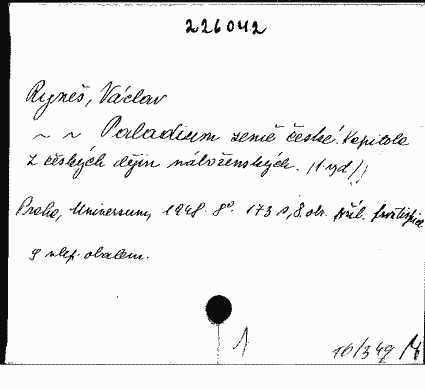 226042
Ryneš, Václav
~ ~ Paladium země české. Kapitola
z českých dějin náboženských. (1 vyd.)
Praha, Universum, 1948. 8°. 173 s, 8 obr. příl. frontispice
s vlep. obalem.
1
16/349